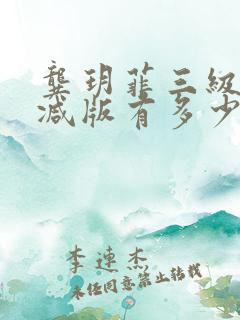 龚玥菲三級
减版有多少
李連杰
未经同意禁止转载